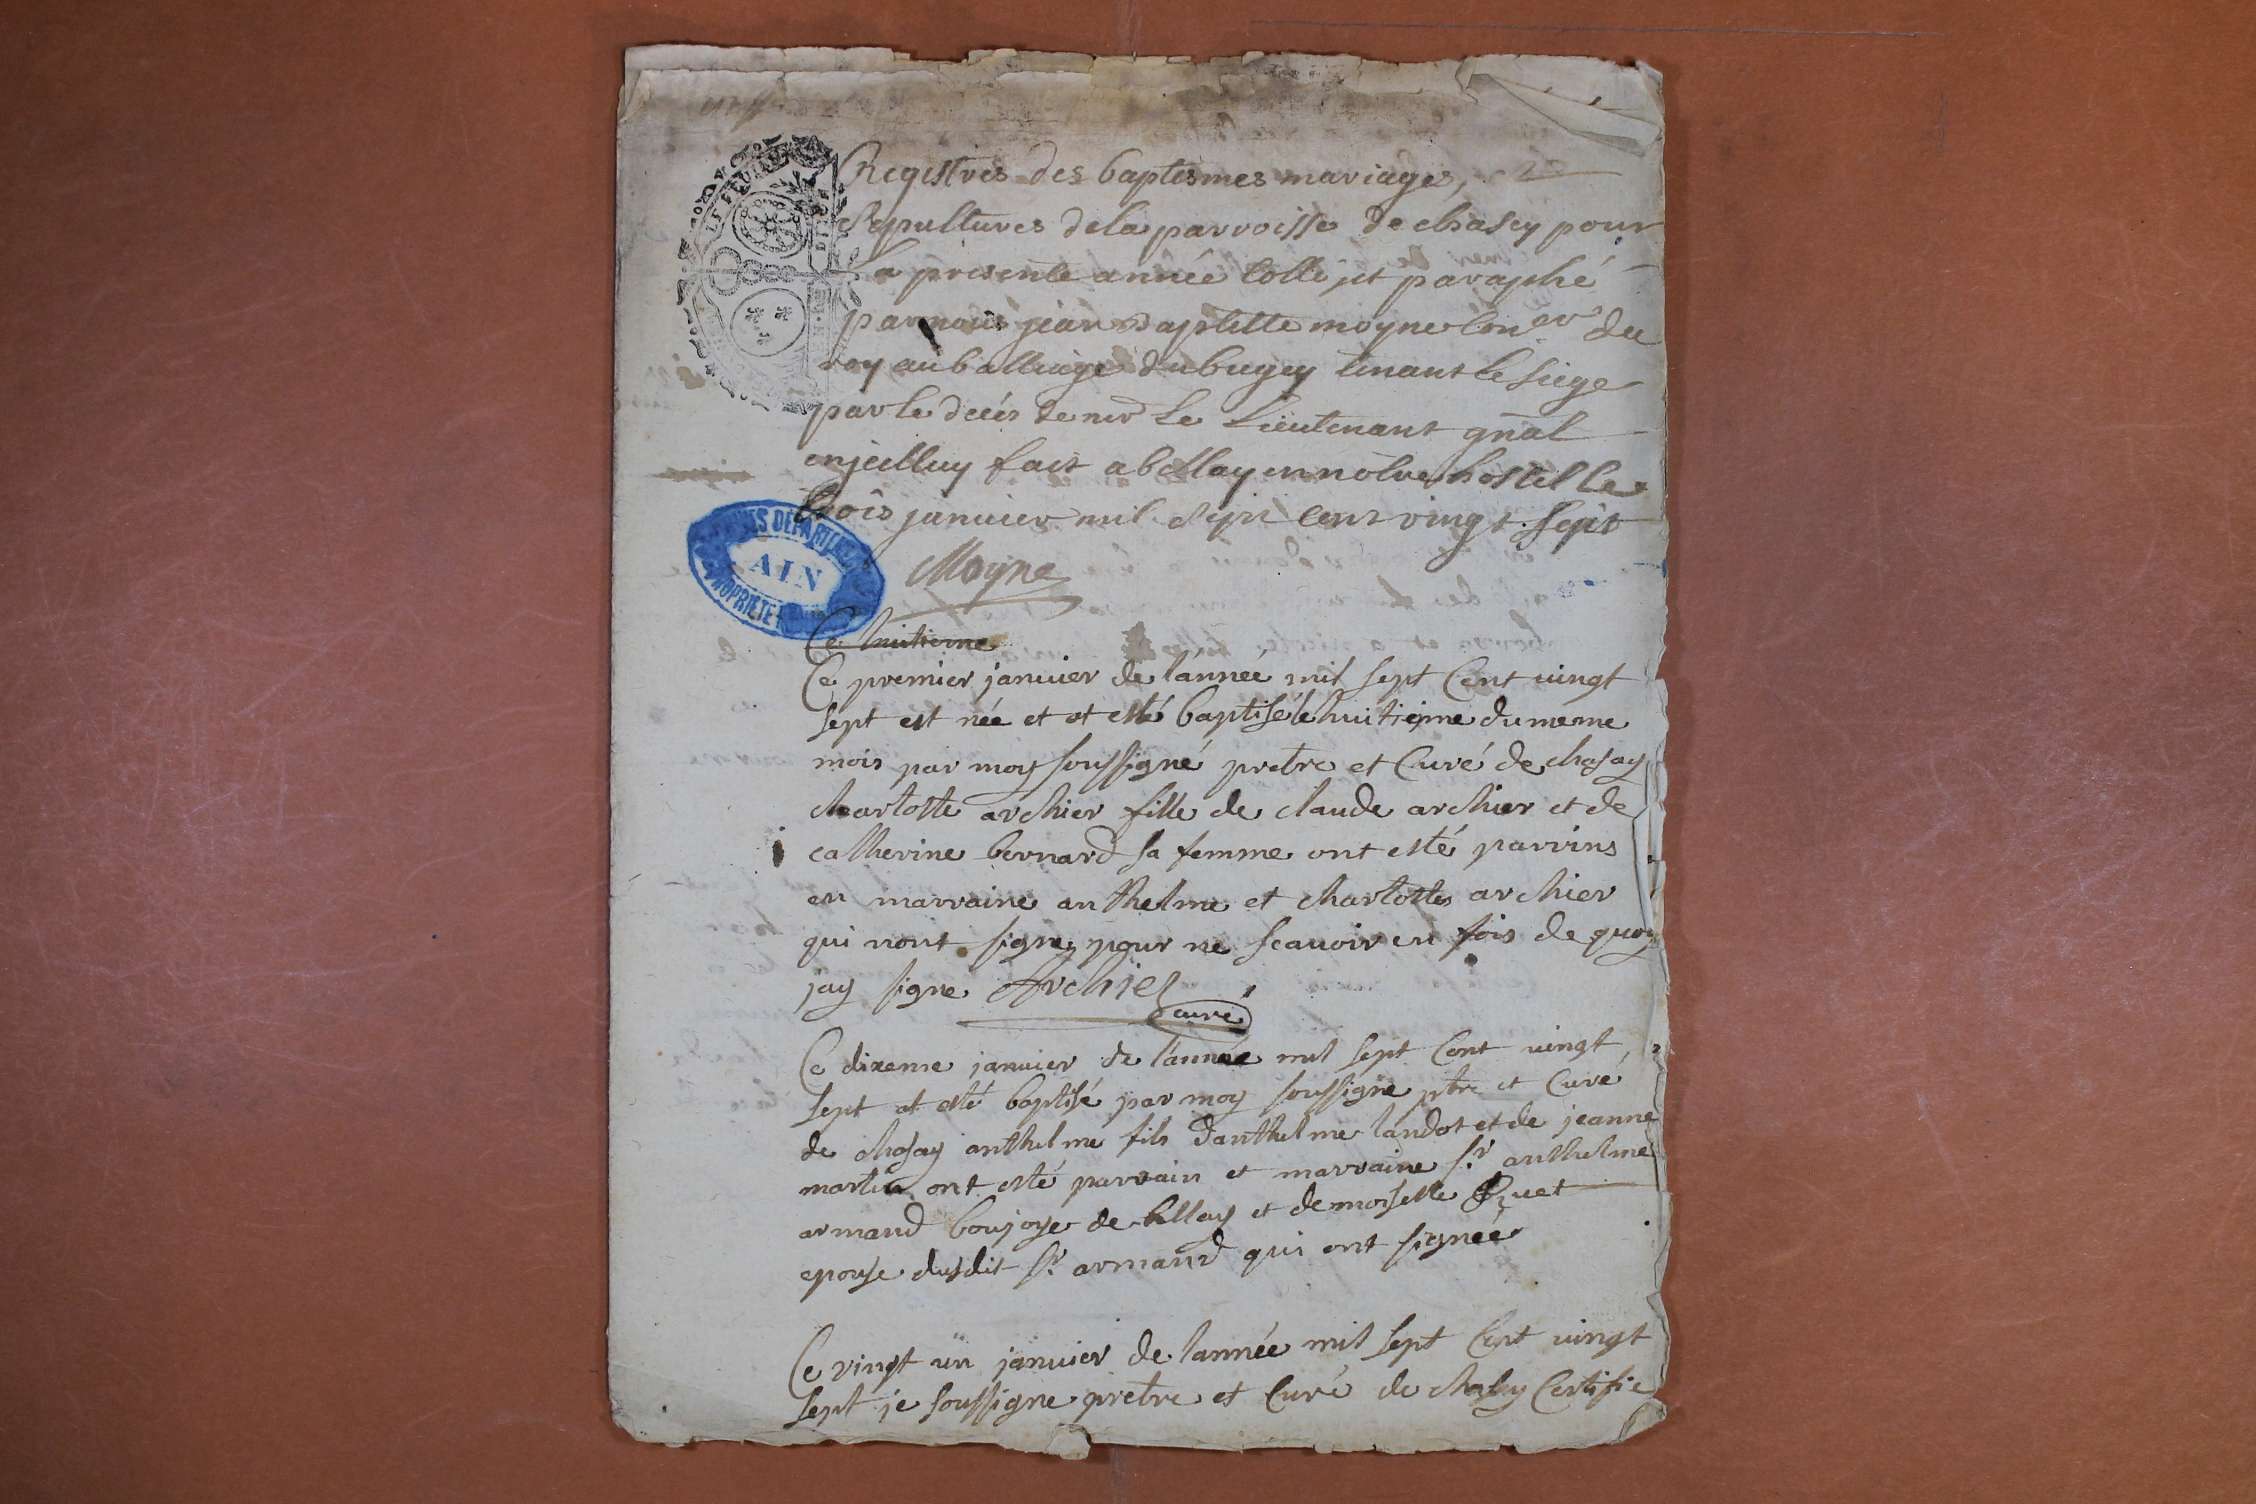 Registres des baptesmes mariages, et
Sepultures de la parroisse de chasey pour
La presente année Cotté et paraphé
par nous jean Baptiste moyne Con.er du
roy au balliage du bugey tenant le siege
par le decés de mr Le Lieutenant gnâl
fait a bellay en nôtre hostel le
trois janvier mil sept cent vingt-sept
Moyne
ARCHIVES DEPARTEMENTALES
AIN
PROPRIETE
Ce huitieme
Ce premier janvier de l'année mil sept Cent vingt
sept est née et at esté baptisé le huitieme du meme
mois par moy soussigné pretre et Curé de chasay
charlotte archier fille de claude archier et de
catherine bernard sa femme ont esté parrins
en marraine anthelme et charlotte archier
qui nont signe pour ne scavoir en fois de quoy
jay signe Archier
curé
Ce dixeme janvier de l'année mil sept Cent vingt
sept at esté baptisé par moy soussigne ptre et Curé
de chasay anthelme fils d'anthelme landot et de jeanne
martin ont esté parrain et marraine sr anthelme
armand boujoye de bellay et demoiselle Ruet
epouse dudit sr armand qui ont signéé
Ce vingt un janvier de l'année mil sept Cent vingt
sept je soussigne pretre et Curé de chasey Certifie